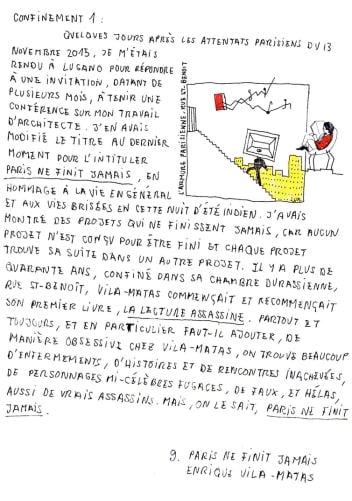 CONFINEMENT 1 :
QUELQUES JOURS APRÈS LES ATTENTATS PARISIENS DU 13
NOVEMBRE 2015, JE M'ÉTAIS
RENDU À LUGANO POUR RÉPONDRE
À UNE INVITATION, DATANT DE
PLUSIEURS MOIS, À TENIR UNE
CONFÉRENCE SUR MON TRAVAIL
D'ARCHITECTE. J'EN AVAIS
MODIFIÉ LE TITRE AU DERNIER
MOMENT POUR L'INTITULER
PARIS NE FINIT JAMAIS, EN
HOMMAGE À LA VIE EN GÉNÉRAL
ET AUX VIES BRISÉES EN CETTE NUIT D'ÉTÉ INDIEN. J'AVAIS
MONTRÉ DES PROJETS QUI NE FINISSENT JAMAIS, CAR AUCUN
PROJET N'EST CONÇU POUR ÊTRE FINI ET CHAQUE PROJET
TROUVE SA SUITE DANS UN AUTRE PROJET. IL Y A PLUS DE
QUARANTE ANS, CONFINÉ DANS SA CHAMBRE DURASSIENNE,
RUE ST-BENOÎT, VILA-MATAS COMMENÇAIT ET RECOMMENÇAIT
SON PREMIER LIVRE, LA LECTURE ASSASSINE. PARTOUT ET
TOUJOURS, ET EN PARTICULIER FAUT-IL AJOUTER, DE
MANIÈRE OBSESSIVE CHEZ VILA-MATAS, ON TROUVE BEAUCOUP
D'ENFERMEMENTS, D'HISTOIRES ET DE RENCONTRES INACHEVÉES,
DE PERSONNAGES MI-CÉLÈBRES FUGACES, DE FAUX, ET HÉLAS,
AUSSI DE VRAIS ASSASSINS. MAIS, ON LE SAIT, PARIS NE FINIT
JAMAIS.
L'ARMURE PARISIENNE - RUE ST-BENOIT
9. PARIS NE FINIT JAMAIS
ENRIQUE VILA-MATAS